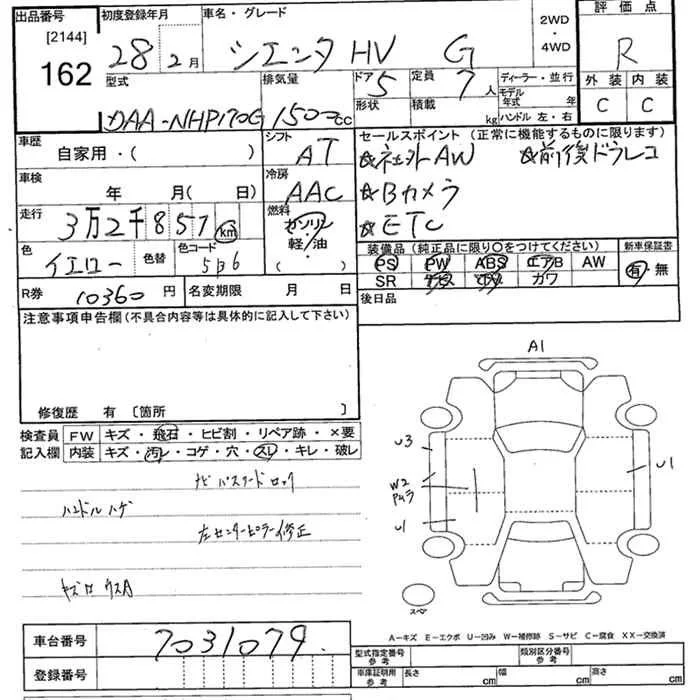 出品番号 [2144] 162
初度登録年月 28 2月
車名・グレード シエンタ HV G
2WD・4WD
評価点 R
外装 C 内装 C
型式 DAA-NHP170G
排気量 1500cc
ドア 5
形状
定員 7人
積載 kg
ディーラー・並行
モデル年式 年
ハンドル 左・右
車歴 自家用・( )
シフト AT
車検 年 月( 日)
冷房 AAC
走行 3万2千857km
燃料 ガソリン 軽/油 ( )
色 イエロー 色替
色コード 5B6
R券 10360円
名変期限 月 日
セールスポイント(正常に機能するものに限ります)
☆社外AW ☆前後ドラレコ
☆Bカメラ
☆ETC
装備品(純正品に限り○をつけてください)
新車保証書 有・無
PS PW ABS エアB AW
SR ナビ TV カワ
後日品
注意事項申告欄(不具合内容等は具体的に記入して下さい)
修復歴 有 [箇所 ]
検査員記入欄
FW キズ・飛石・ヒビ割・リペア跡・×要
内装 キズ・汚レ・コゲ・穴・スレ・キレ・破レ
ナビパスワードロック
ハンドルハゲ
左センターピラー修正
キズ凹ウスA
A1
U3
W2
Pムラ
U1
U1
スペア
A-キズ E-エクボ U-凹み W-補修跡 S-サビ C-腐食 XX-交換済
車台番号 7031079
登録番号
型式指定番号 参考
類別区分番号 参考
車庫証明用 参考
長さ cm
幅 cm
高さ cm